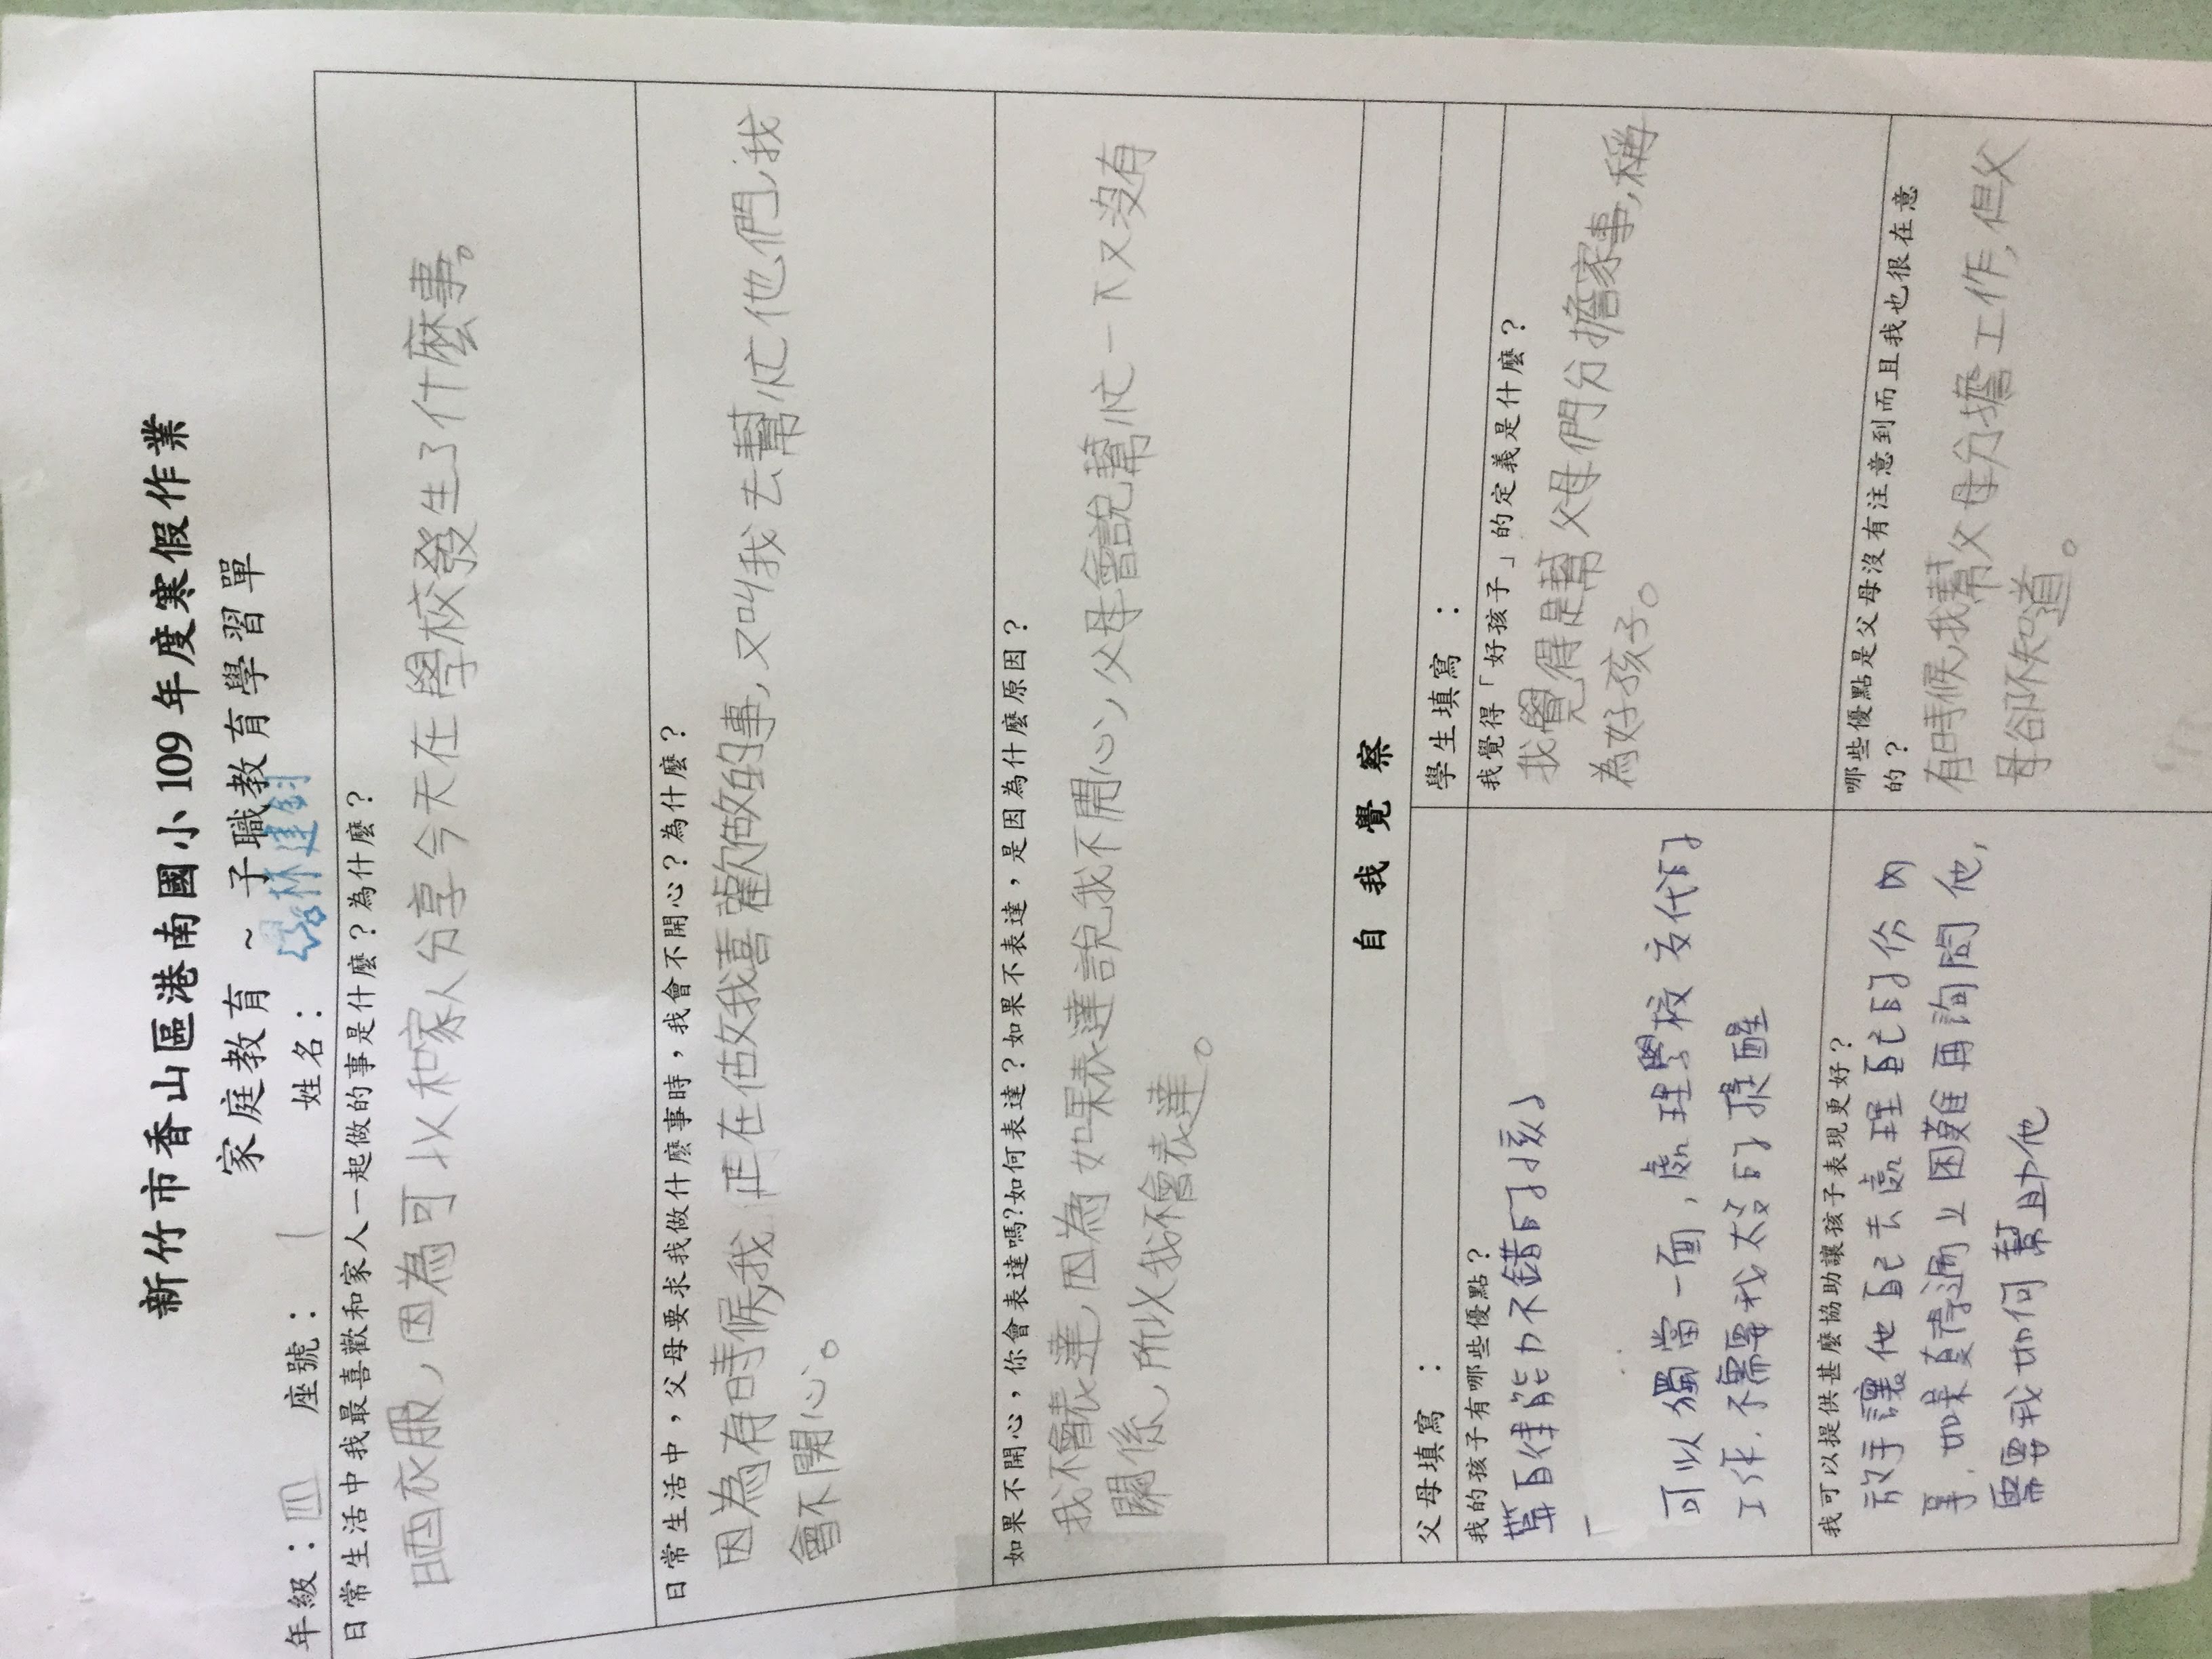 新竹市香山區港南國小109年度寒假作業
家庭教育~子職教育學習單
年級：四 座號：1 姓名：
日常生活中我最喜歡和家人一起做的事是什麼？為什麼？
晒衣服，因為可以和家人分享今天在學校發生了什麼事。
日常生活中，父母要求我做什麼事時，我會不開心？為什麼？
因為有時候，我正在做我喜歡做的事，又叫我去幫忙他們，我
會不開心。
如果不開心，你會表達嗎?如何表達？如果不表達，是因為什麼原因？
我不會表達，因為如果表達說我不開心，父母會說幫忙一下又沒有
關係，所以我不會表達。
自我覺察
父母填寫：
我的孩子有哪些優點？
算自律能力不錯的孩子
可以獨當一面，處理學校交代的
工作.不需要我太多的提醒
我可以提供甚麼協助讓孩子表現更好？
放手讓他自己去處理自己的份內
事.如果真得遇上困難再詢問他，
需要我如何幫助他
學生填寫：
我覺得「好孩子」的定義是什麼？
我覺得是幫父母們分擔家事，稱
為好孩子。
哪些優點是父母沒有注意到而且我也很在意
的？
有時候，我幫父母分擔工作，但父
母卻不知道。